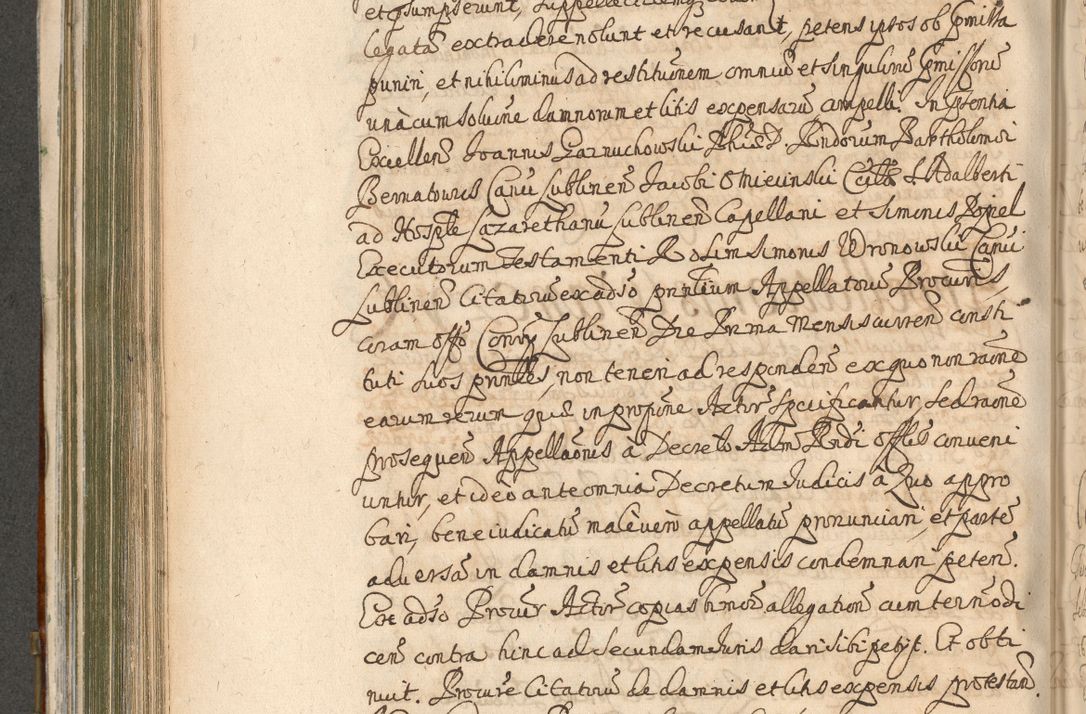 legata extradere nolunt et recusant, petens ipsos ob pmissa
puniri, et nihilominus ad restitunem omniu et singuloru pmissoru
una cum solune damnorum et litis expensaru compelli. In pntia
Excellen Joannis Garnuchowski Phiae D. Rndorum Bartholomei
Bernatowis Canci Lublinen Jacobi Omiecinski S. Adalberti
ad Hosple Lazarethanu Lublinen Capellani et Simonis Popiel
Executorum Testamenti R. olim Simonis Wronowski Canci
Lublinen Citatoru ex adso pntium Appellatoru Procuris
coram offo Lublinen Die Prima Mensis curren consti
tuti suos pnles, non teneri ad responden ex quo non raone
earum rerum quae in propone Actir specificantur, sed raone
prosequen Appellaonis à Decreto Adm Rndi Offlis conveni
untur, et ideo ante omnia Decretum Judicis à Quo appro
bari, bene iudicatu male vero appellatu pronunciari, et parte
adversa in damnis et litis expensis condemnari peten.
Ex adso Procur Actir copias hmoi allegation cum termo di
cen contra hinc ad secundam Juris dari sibi petijt. Et obti
nuit. Procure Citatoru de damnis et litis expensis protestan.